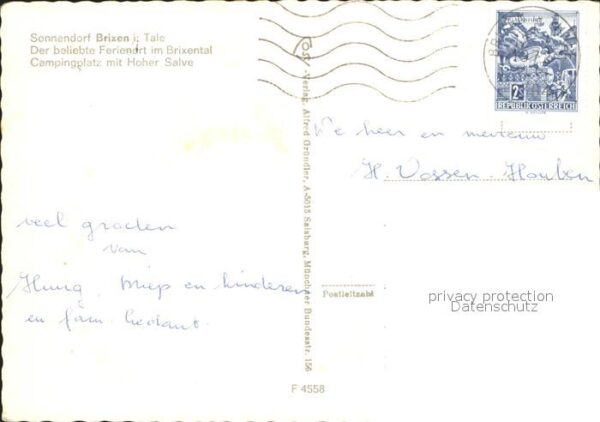 Sonnendorf Brixen i. Tale
Der beliebte Ferienort im Brixental
Campingplatz mit Hoher Salve
veel groeten
van
Miep en kinderen
en fam.
Ost-Verlag, Alfred Gründler, A-5015 Salzburg, Münchner Bundesstr. 156
F 4558
2 S
REPUBLIK ÖSTERREICH
heer en mevrouw
H. Vossen-Houben
Postleitzahl
privacy protection
Datenschutz